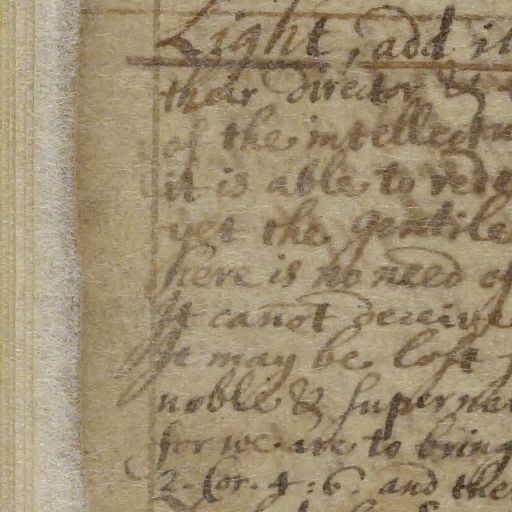 Light, add it
their director &
of the intellectu
it is able to rede
yet the gentile
here is no need of
It cañot deceive
It may be lost
noble & supernat
for we are to bring
2. Cor. 4: 6. and the